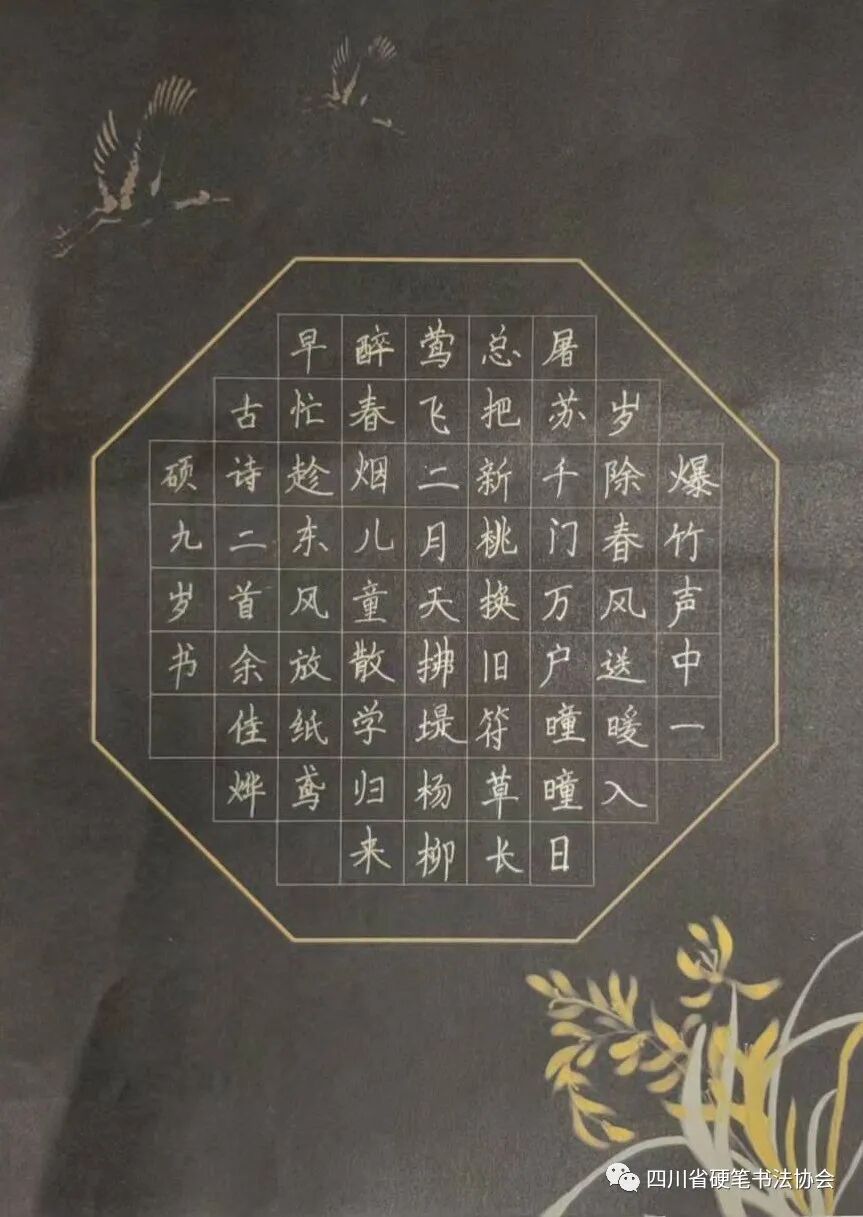 爆竹声中一
岁除春风送暖入
屠苏千门万户曈曈日
总把新桃换旧符草长
莺飞二月天拂堤杨柳
醉春烟儿童散学归来
早忙趁东风放纸鸢
古诗二首余佳烨
硕九岁书
四川省硬笔书法协会